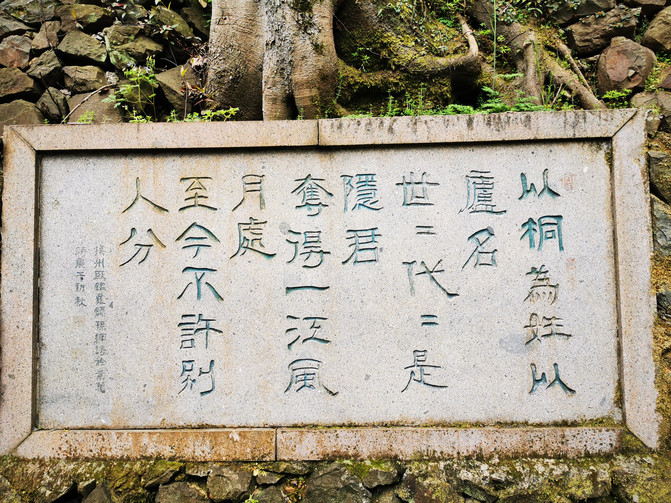 以桐為姓以
廬名
世〻代〻是
隱君
奪得一江風
月處
至今不許別
人分